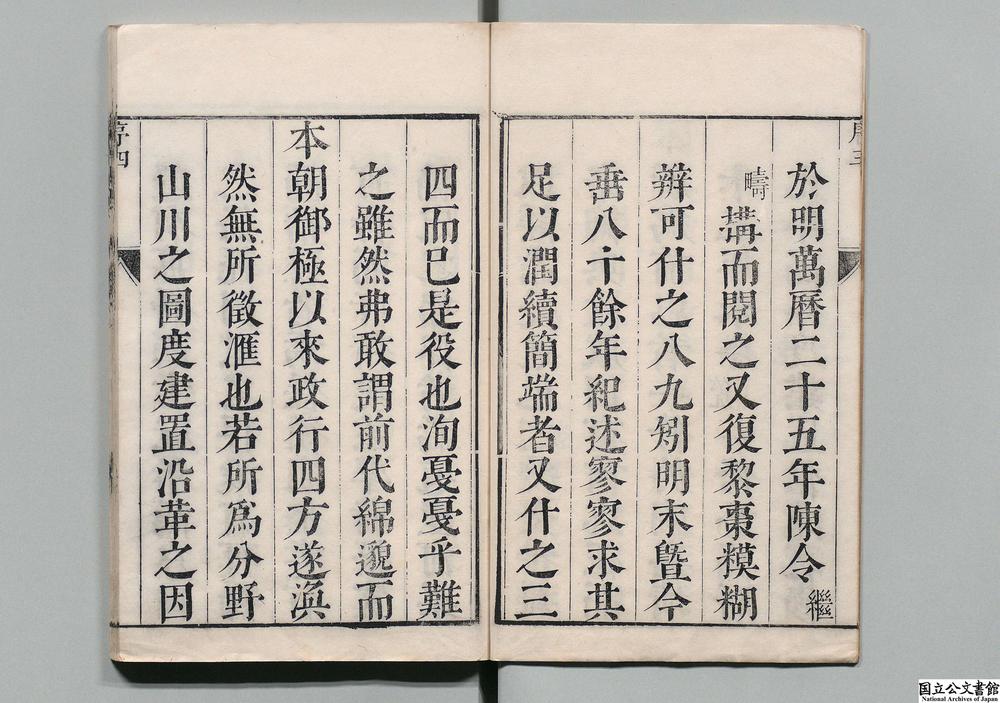 序三
於明萬曆二十五年陳令繼
疇搆而閱之又復黎棗糢糊
辨可什之八九矧明末曁今
垂八十餘年紀述寥寥求其
足以潤續簡端者又什之三
四而已是役也洵戞戞乎難
之雖然弗敢謂前代綿邈而
本朝御極以來政行四方遂渙
然無所徵滙也若所爲分野
山川之圖度建置沿革之因
序四
国立公文書館
National Archives of Japan